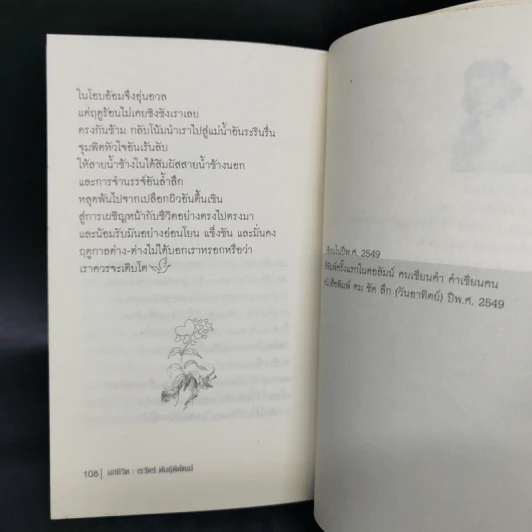 ในโอบอ้อมจึงอุ่นอวล
แต่ฤดูร้อนไม่เคยชิงชังเราเลย
ตรงกันข้าม กลับโน้มนำเราไปสู่แม่น้ำอันระรินรื่น
ชุบพิดหัวใจอันเร้นลับ
ให้สายน้ำข้างในได้สัมผัสสายน้ำข้างนอก
และการจำนรรจ์อันล้ำลึก
หลุดพ้นไปจากเปลือกผิวอันตื้นเขิน
สู่การเผชิญหน้ากับชีวิตอย่างตรงไปตรงมา
และน้อมรับมันอย่างอ่อนโยน แข็งขัน และมั่นคง
ฤดูกาลต่าง-ต่างไม่ได้บอกเราหรอกหรือว่า
เราควรจะเติบโต
108 | บทชีวิต :
เขียนในปีพ.ศ. 2549
พิมพ์ครั้งแรกในคอลัมน์ คนเขียนคำ คำเขียนคน
หนังสือพิมพ์ คม ชัด ลึก (วันอาทิตย์) ปีพ.ศ. 2549